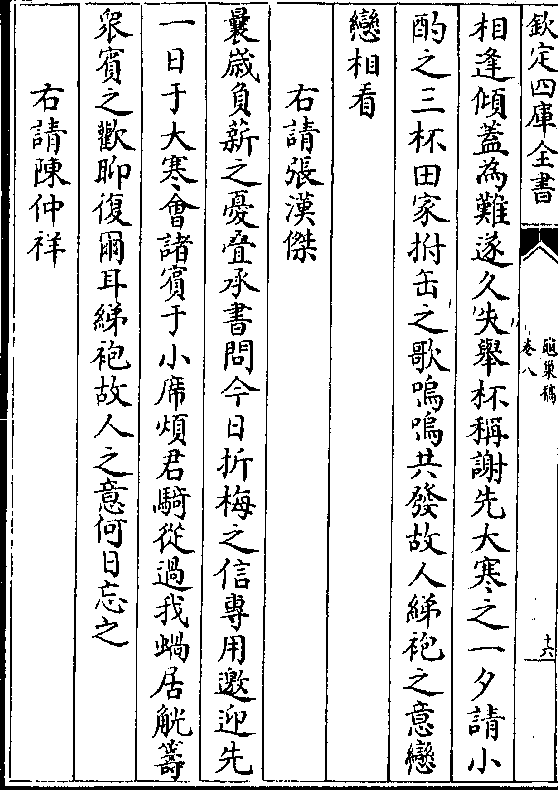 欽定四庫全書
龜巢稿
卷八
十六
相逢傾蓋為難遂久失舉杯稱謝先大寒之一夕請小
酌之三杯田家拊缶之歌嗚嗚共發故人綈袍之意戀
戀相看
右請張漢傑
曩歲負薪之憂疊承書問今日折梅之信專用邀迎先
一日于大寒會諸賓于小席煩君騎從過我蝸居觥籌
衆賓之歡聊復爾耳綈袍故人之意何日忘之
右請陳仲祥